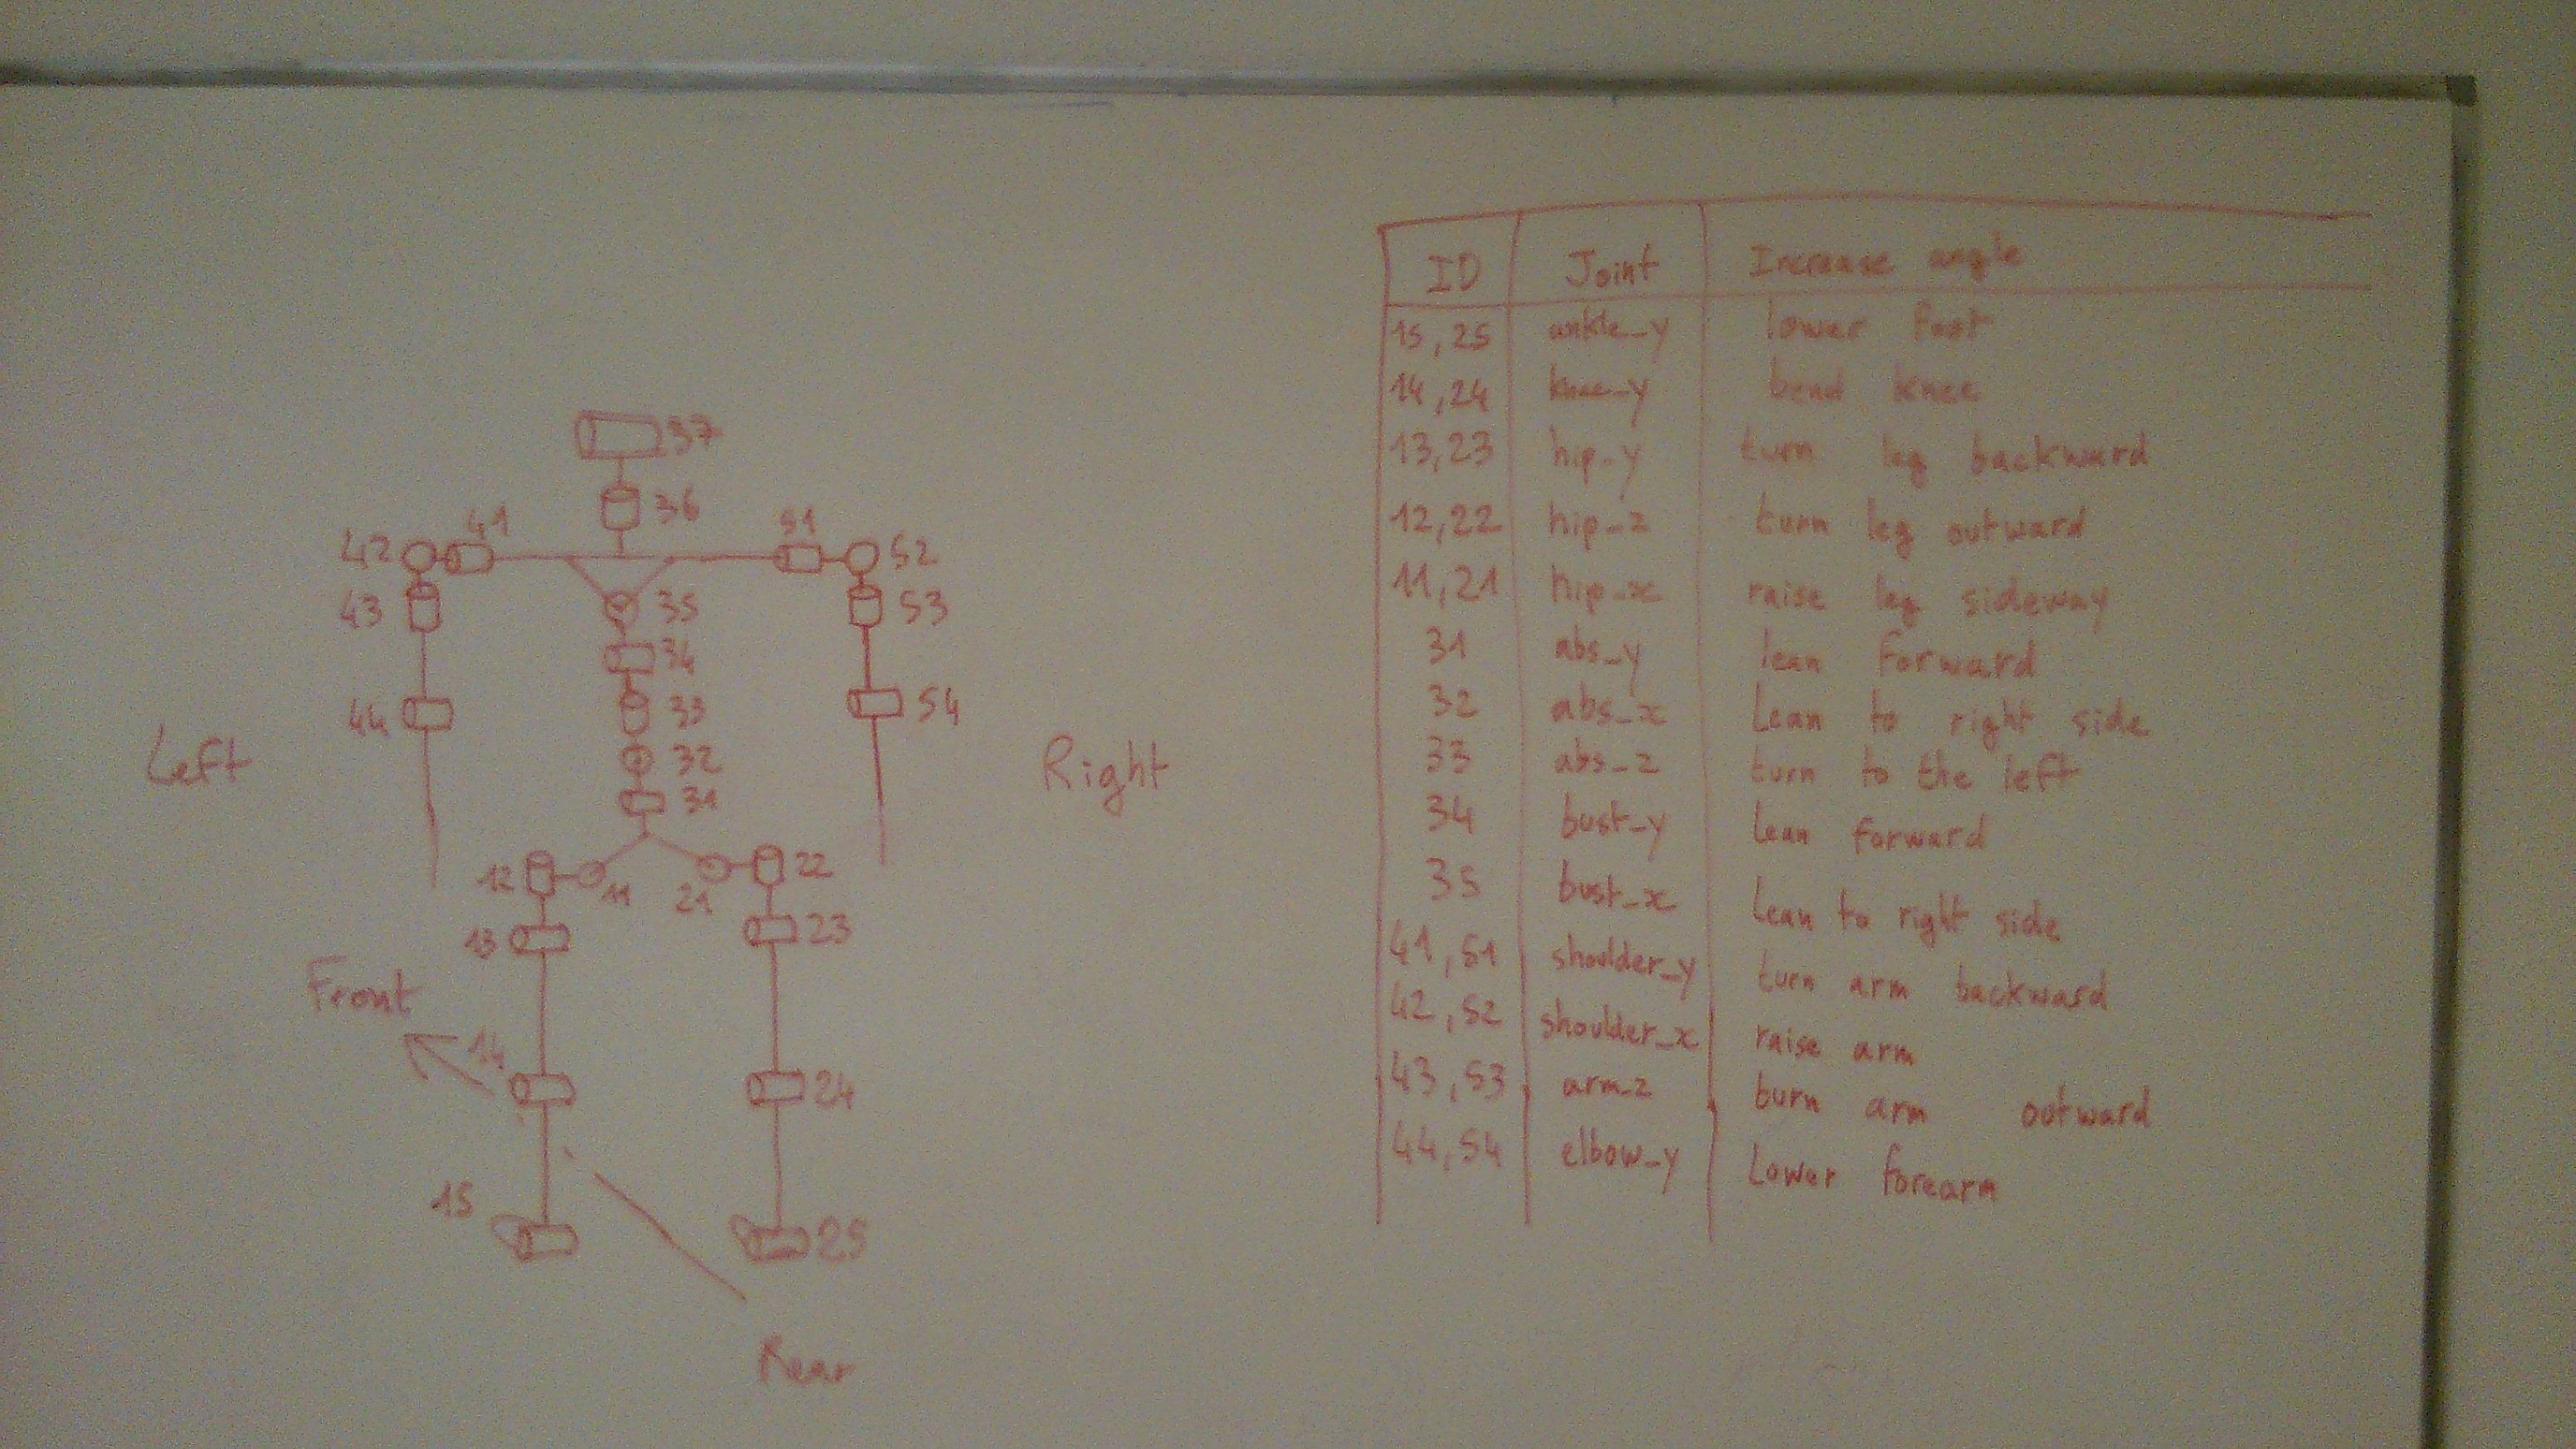 37
36
42 41 51 52
43 35 53
34
44 33 54
Left 32 Right
31
12 11 21 22
13 23
Front
14 24
15 25
Rear
ID Joint Increase angle
15,25 ankle_y lower foot
14,24 knee_y bend knee
13,23 hip_y turn leg backward
12,22 hip_z turn leg outward
11,21 hip_x raise leg sideway
31 abs_y lean forward
32 abs_x lean to right side
33 abs_z turn to the left
34 bust_y lean forward
35 bust_x lean to right side
41,51 shoulder_y turn arm backward
42,52 shoulder_x raise arm
43,53 arm_z turn arm outward
44,54 elbow_y Lower forearm